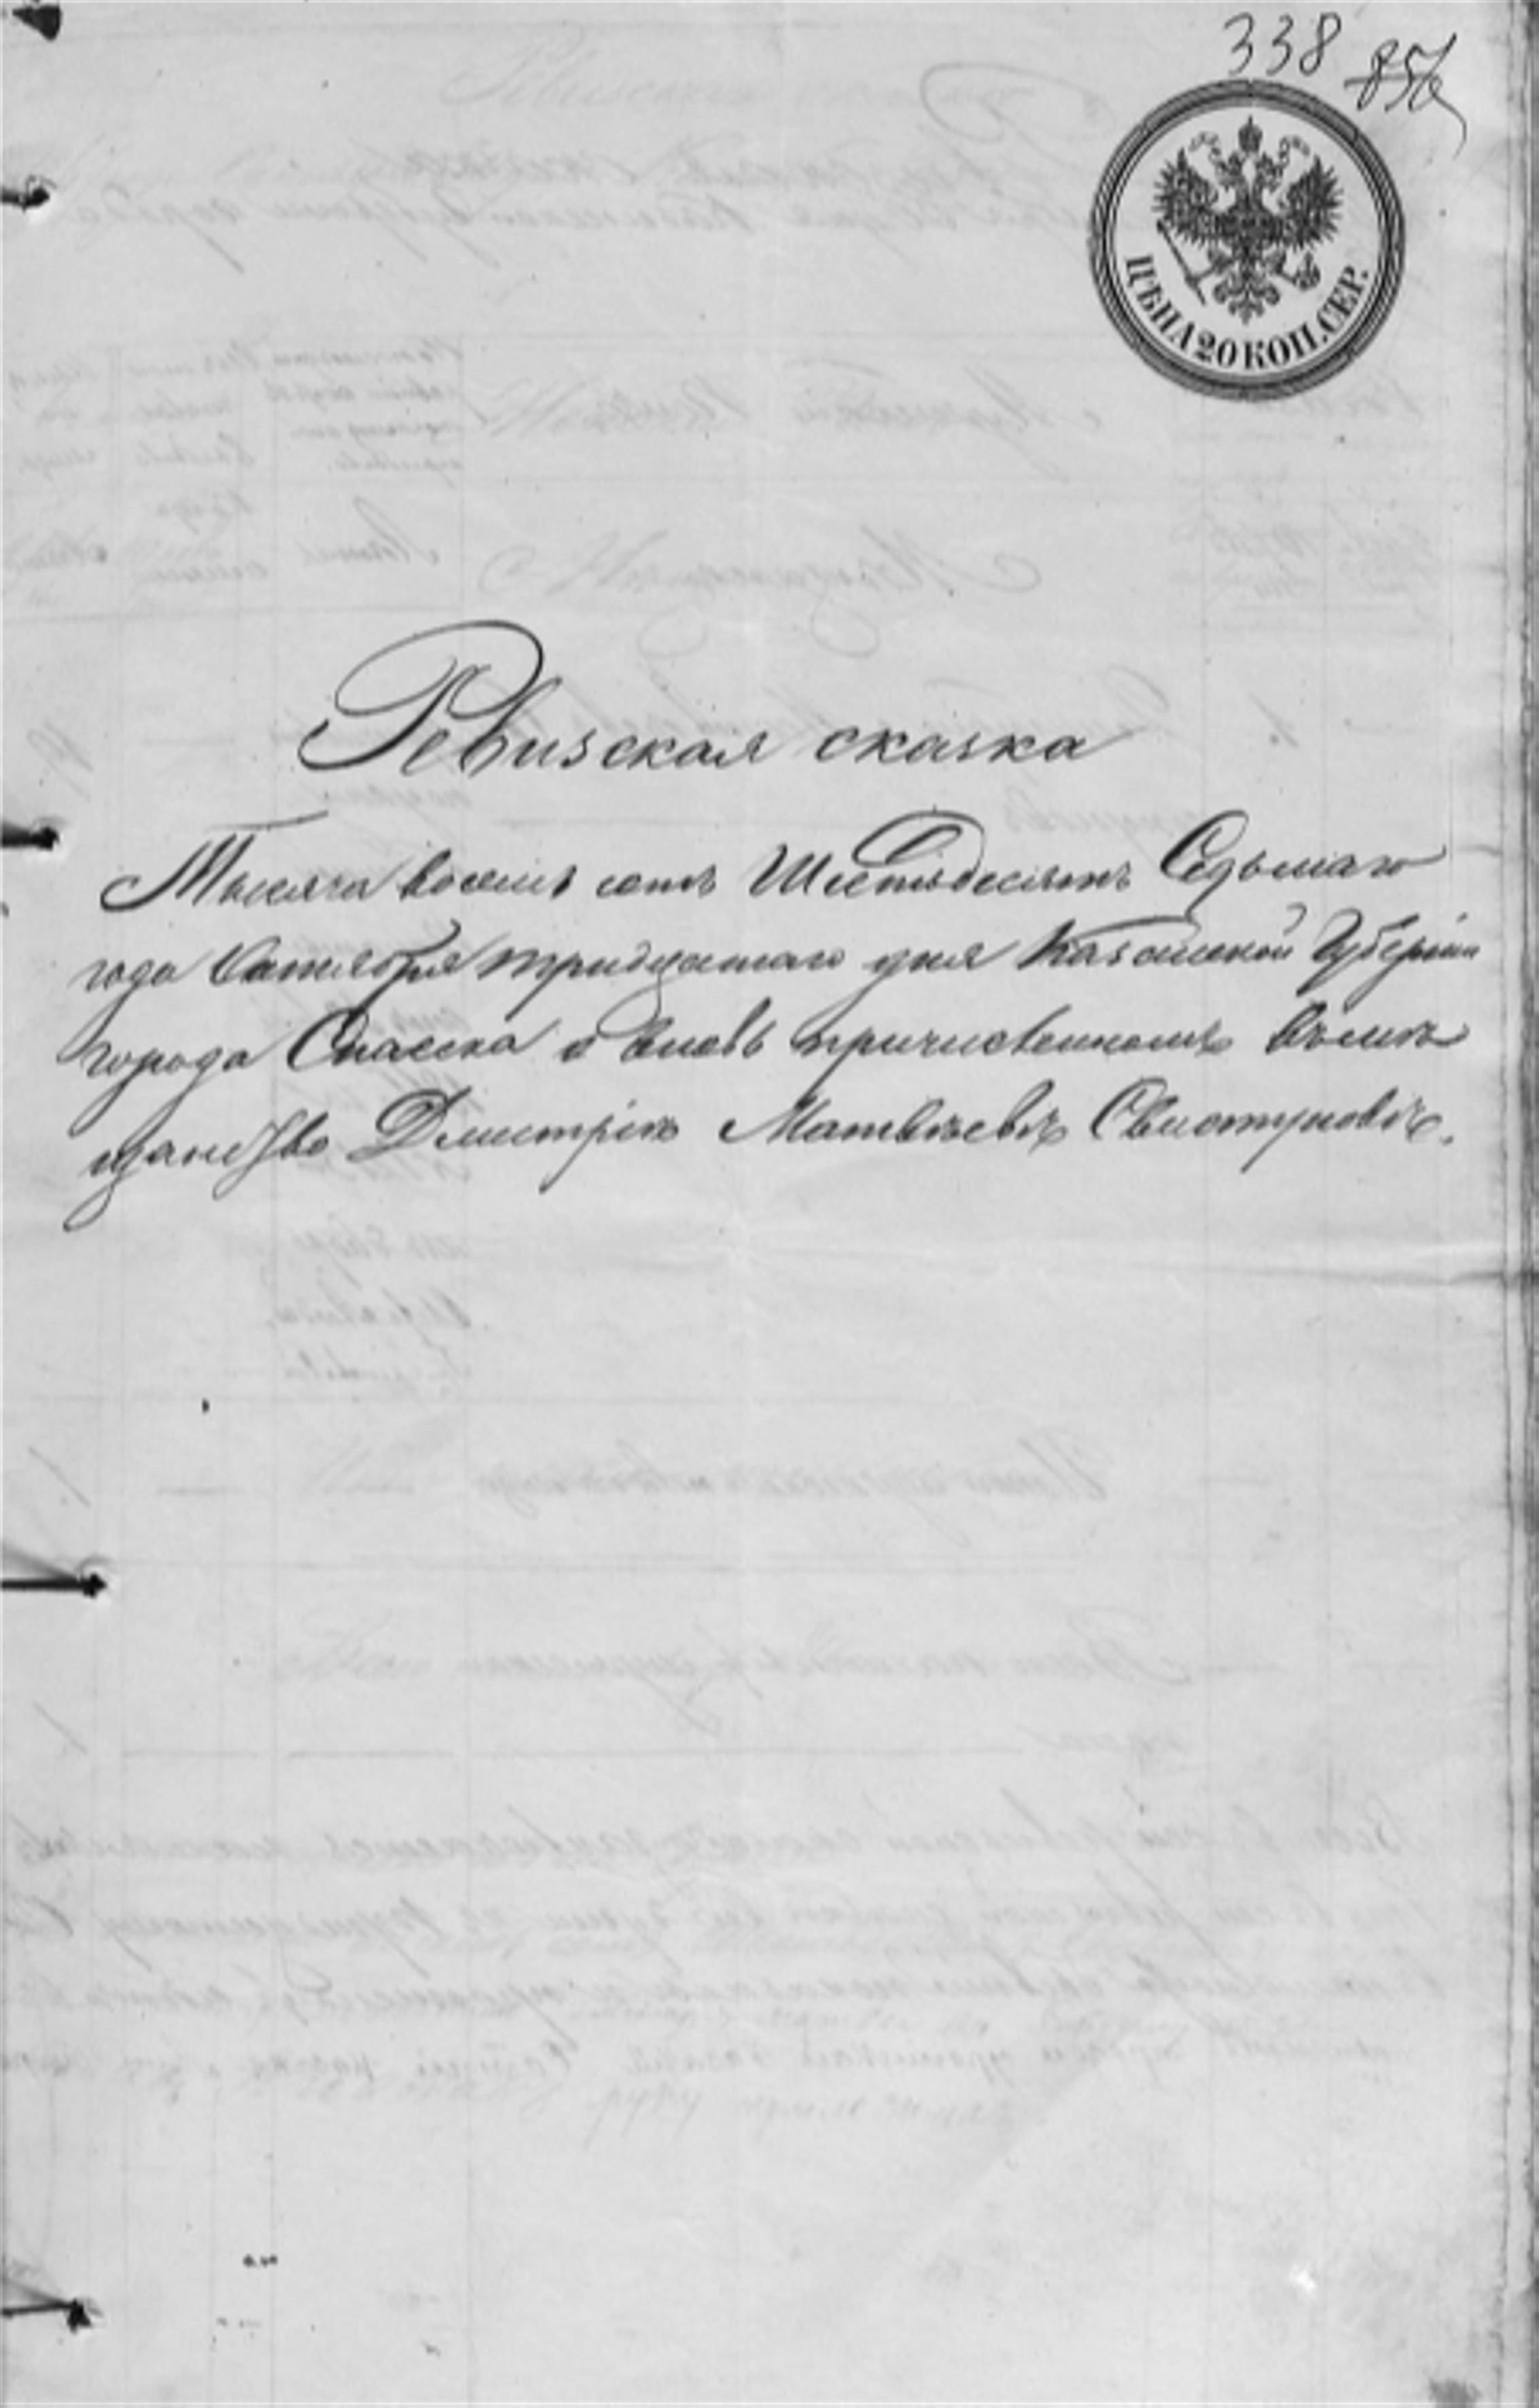 338 856
ЦѢНА 20 КОП. СЕР.
Ревизская сказка
Тысяча восемь сотъ Шестьдесятъ Седьмаго
года Сентября тридцатаго дня Казанской Губерніи
города Спасска о вновь причисленномъ въ мѣ
щанство Дмитріѣ Матвѣевѣ Свистуновѣ.